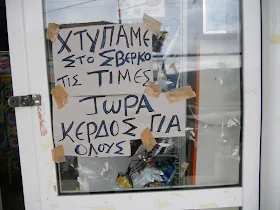 ΧΤΥΠΑΜΕ
ΣΤΟ ΣΒΕΡΚΟ
ΤΙΣ ΤΙΜΕΣ
ΤΩΡΑ
ΚΕΡΔΟΣ ΓΙΑ
ΟΛΟΥΣ